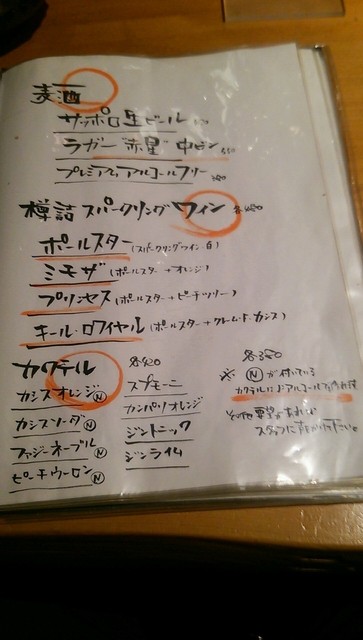 麦酒
サッポロ生ビール
ラガー"赤星"中ビン
プレミアムアルコールフリー
樽詰スパークリングワイン 各450
ポールスター(スパークリングワイン・白)
ミモザ(ポールスター+オレンジ)
プリンセス(ポールスター+ピーチツリー)
キール・ロワイヤル(ポールスター+クレーム・ド・カシス)
カクテル 各420
カシスオレンジⓃ
カシスソーダⓃ
ファジーネーブルⓃ
ピーチウーロンⓃ
スプモーニ
カンパリオレンジ
ジントニック
ジンライム
各350
※Ⓝが付いている
カクテルはノンアルコールでも作れます
その他要望があれば
スタッフにお声がけ下さい。